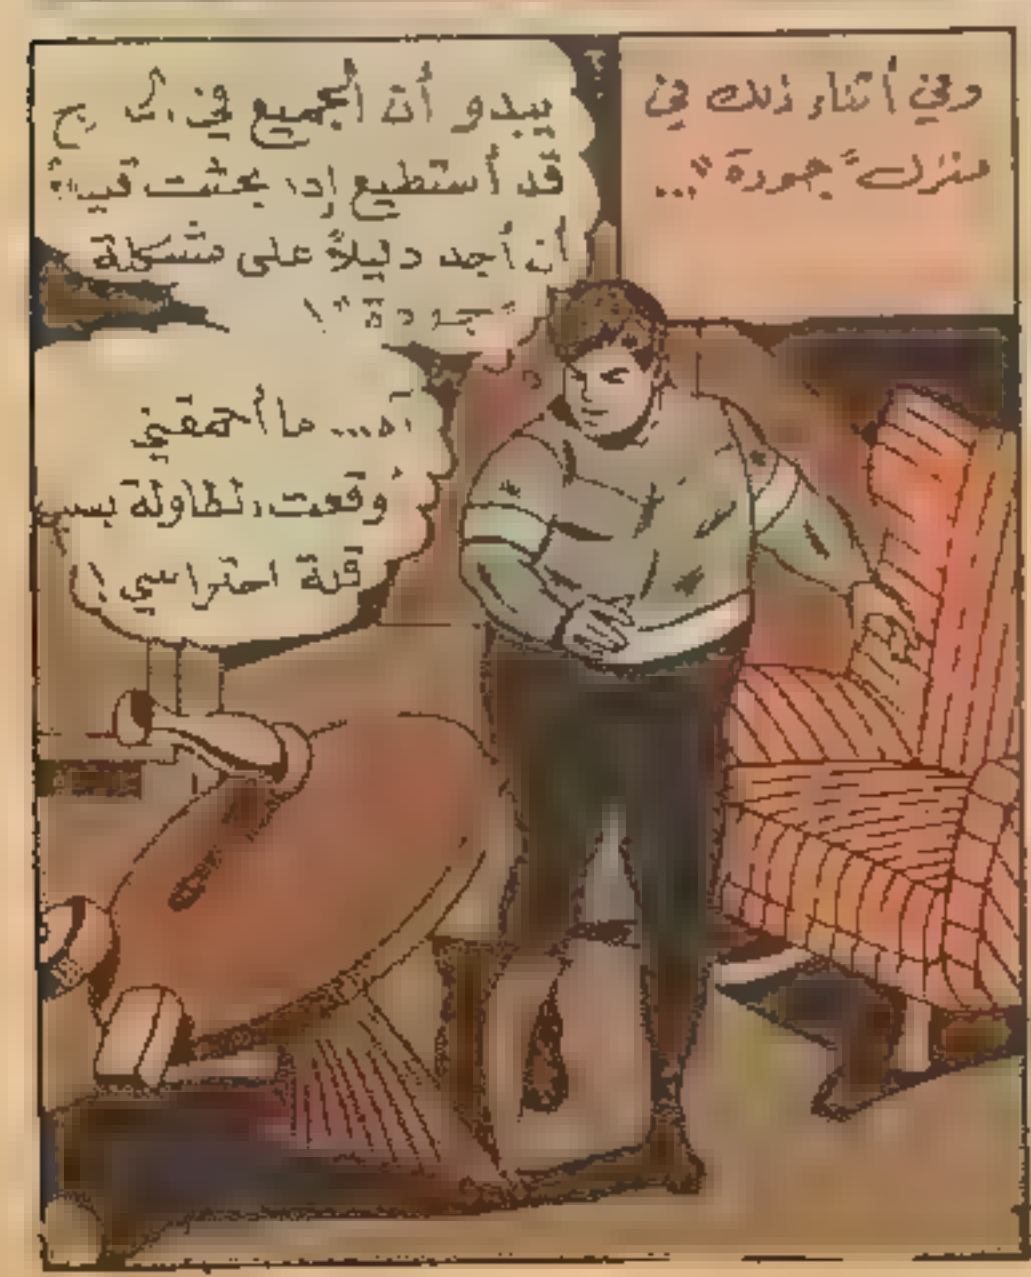 وفي أثناء ذلك في
منزل "جودة"...
يبدو أن الجميع في
قد أستطيع بحثت
أن أجد دليلاً على مشكلة
"جودة"!
آه... ما أحمقني
وقعت الطاولة بسبب
قلة احتراسي!